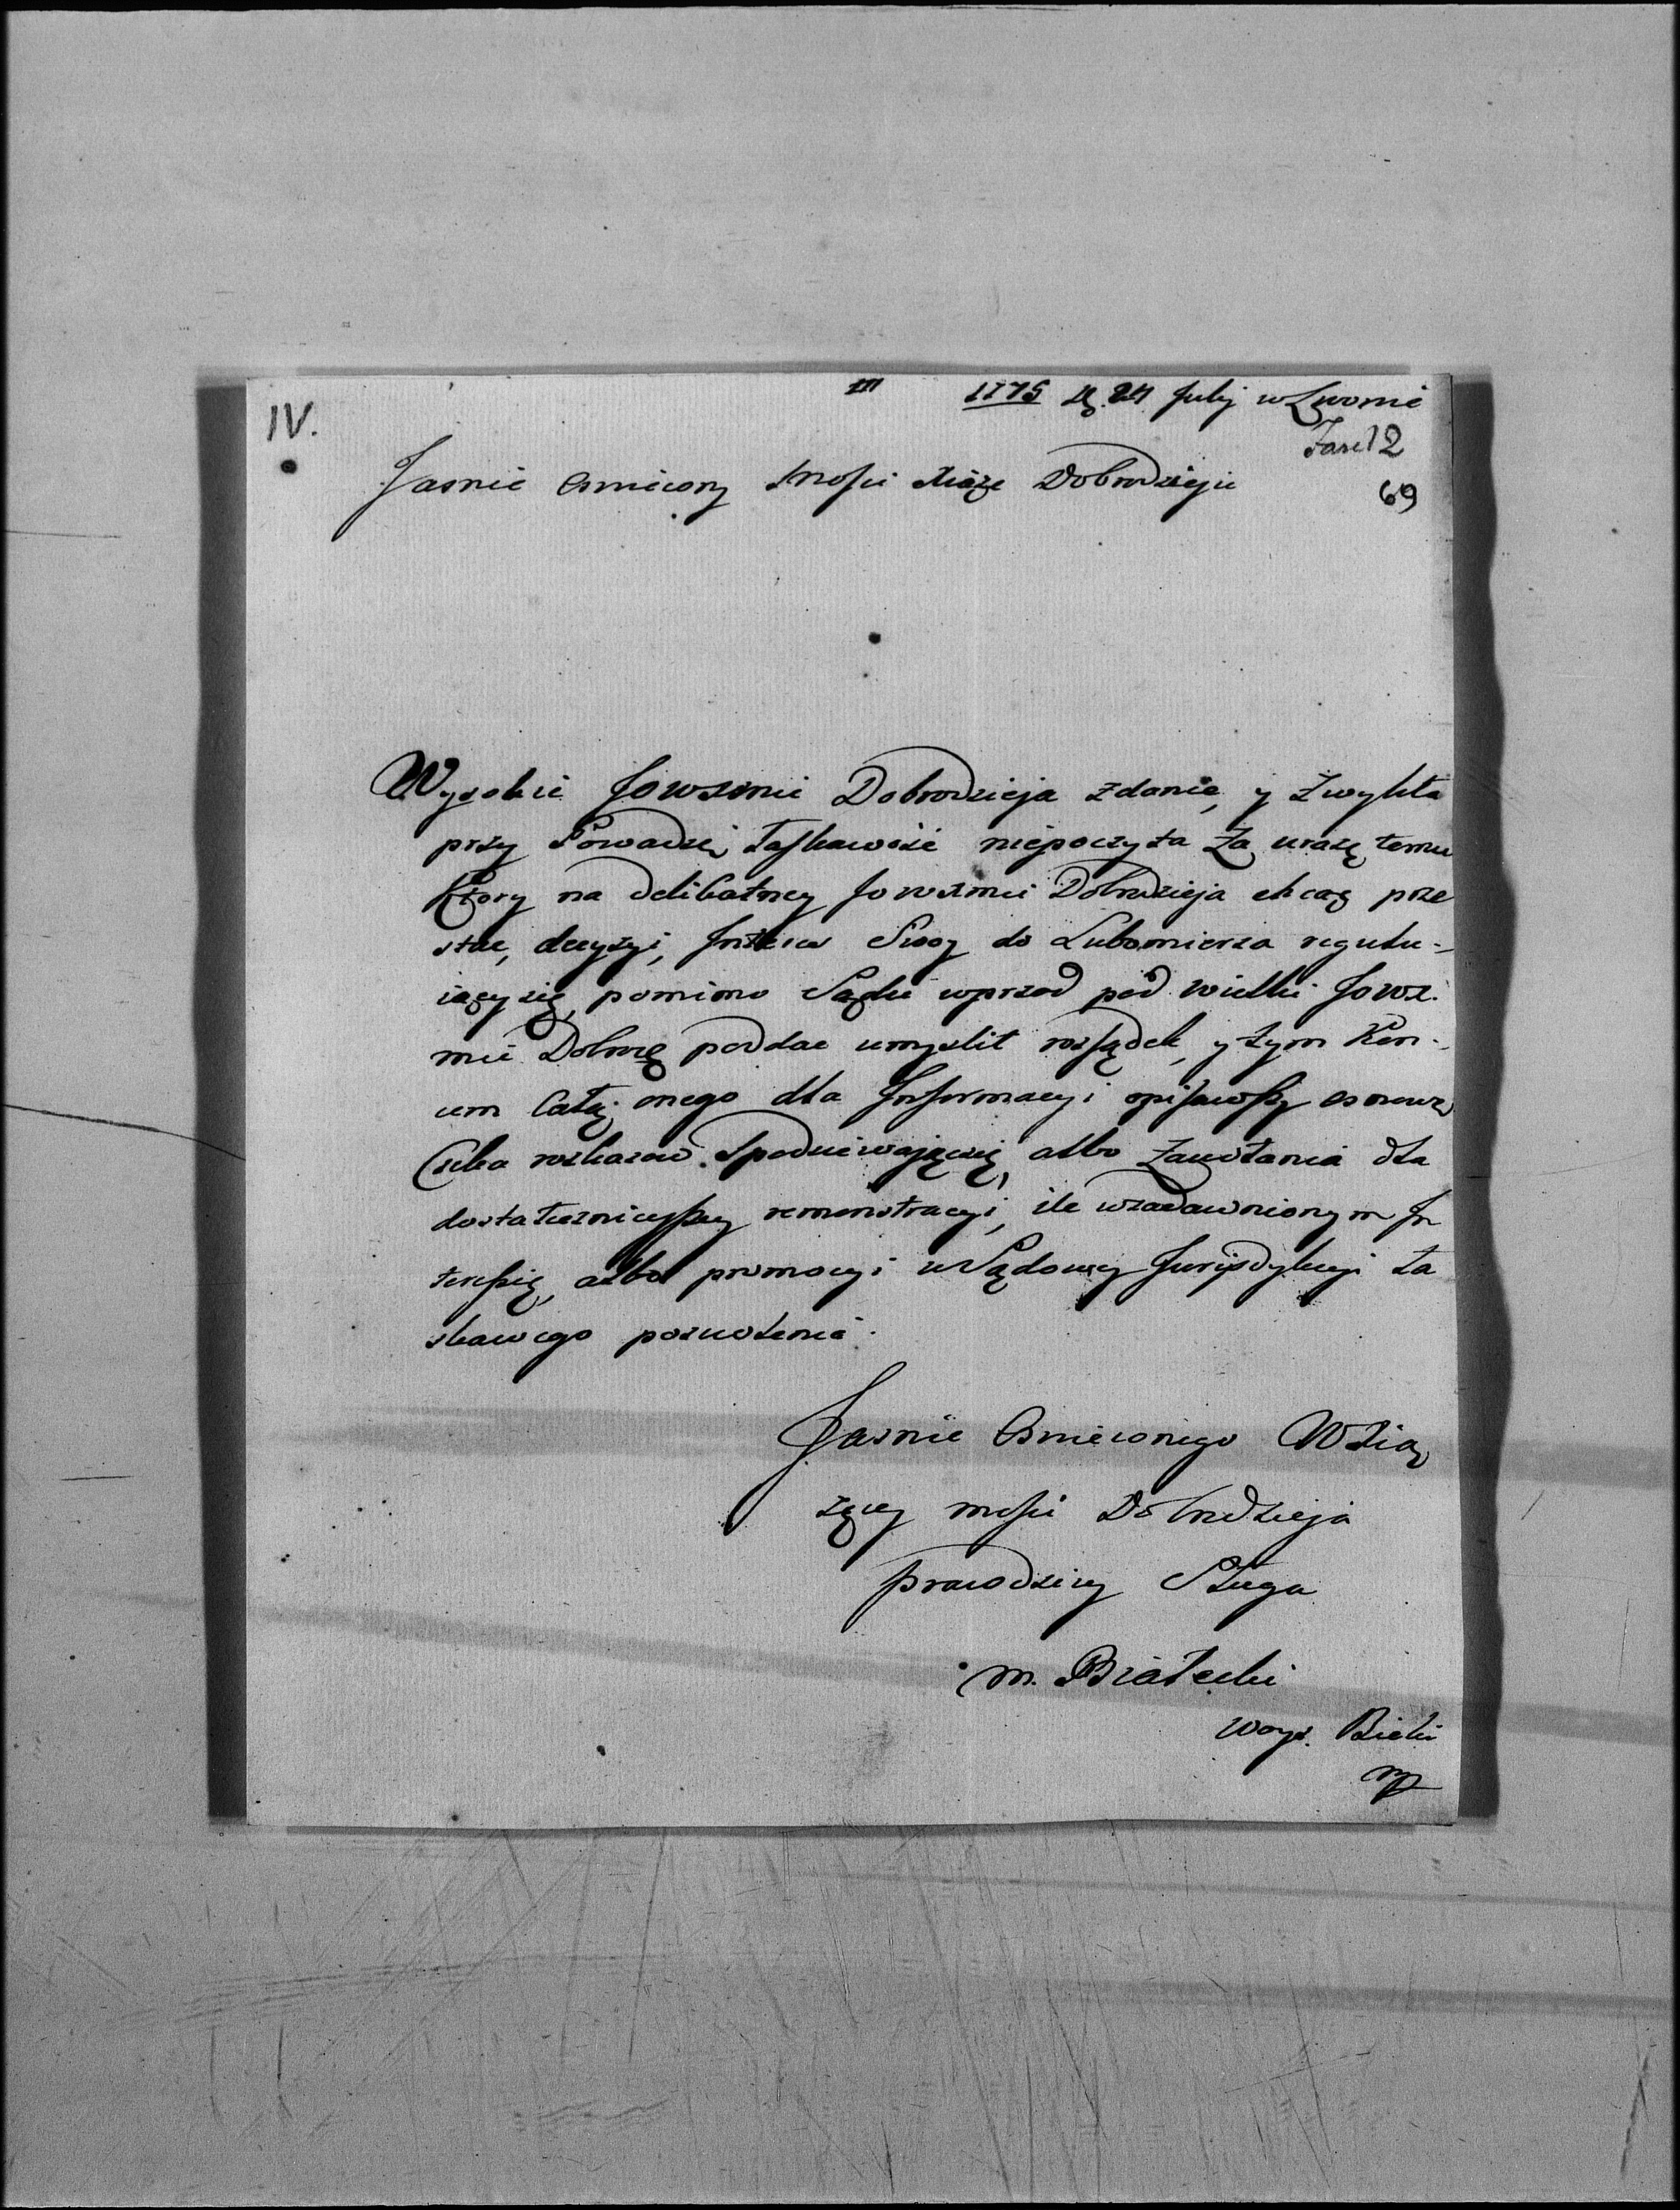 IV.
1775 D. 24 Julij w Lwowie
12
69
Jasnie Oswiecony Mosci Xiąże Dobrodzieju
Wysokie JOWXmci Dobrodzieja zdanie, y zwykła
przy Powadze łaskawość niepoczyta za urazę temu
Ktory na delikatney JoWXmci Dobrodzieja chcąc prze
stac, decyzyi, Jnteres Swoy do Lubomierza regulu-
iący się, pomimo Sądu wprzod pod wielki JOWX.
mci Dobrze poddac umyslił rozsądek, y tym Kon-
cem Całą onego dla Jnformacyi opisawszy osnowę
Czeka rozkazow Spodziewającsię, albo zawołania dla
dostatecznieyszey remonstracyi, ile wzadawnionym Jn
teressie, albo promocyi w Sądowey Jurysdykcyi ła
skawego pozwolenia.
Jasnie Oswieconego WXią
żęcey mosci Dobrodzieja
prawdziwy Sługa
M. Białecki
Woys. Bielski
mp